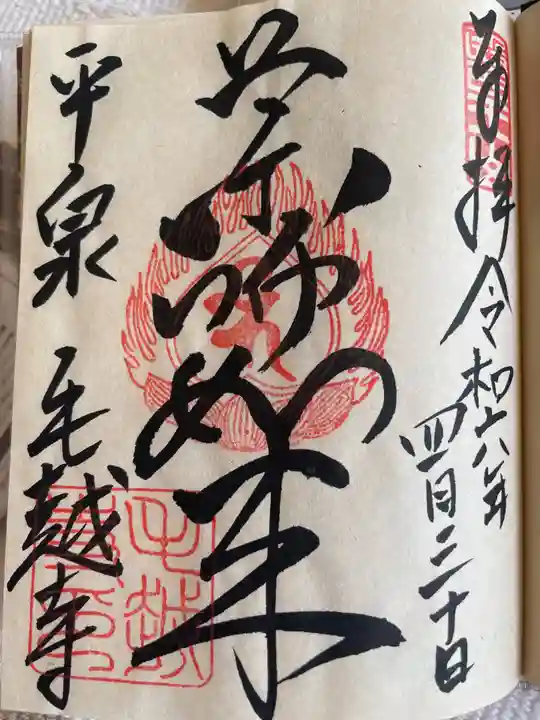 奉拝 令和六年
四月二十日
薬師如来
平泉 毛越寺